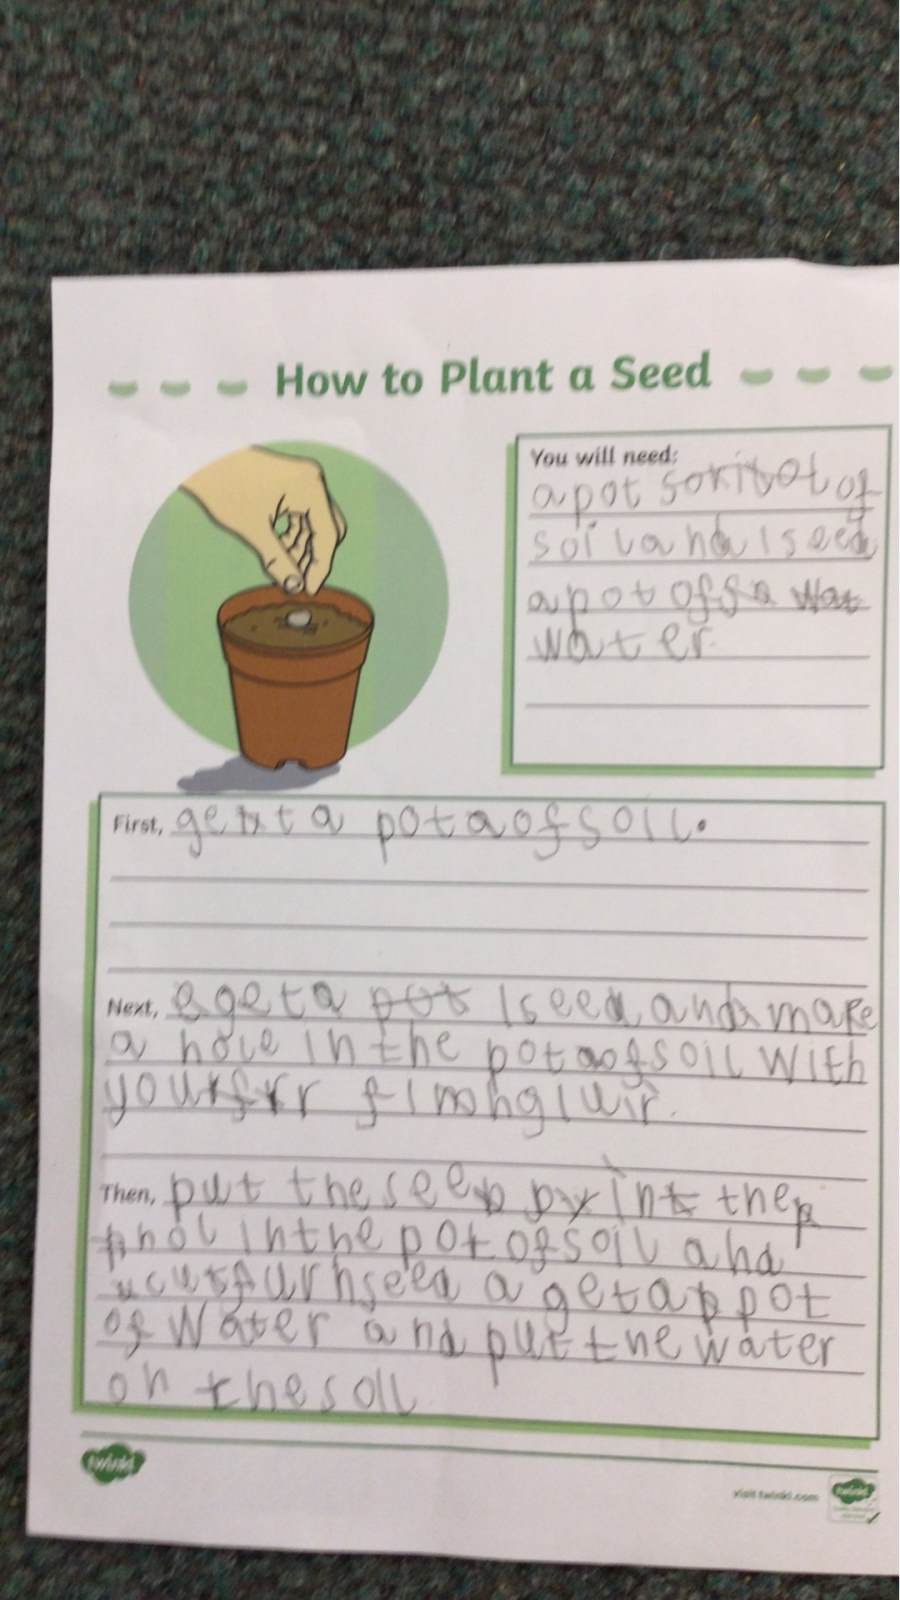 How to Plant a Seed
You will need:
a pot of
soil and 1 seed
a pot of
water.
First, get a pot of soil.
Next, get a pot 1 seed and make
a hole in the pot of soil with
your
Then, put the seed in the
hol in the pot of soil and
get a pot
of water and put the water
on the soil
twinkl
visit twinkl.com
twinkl